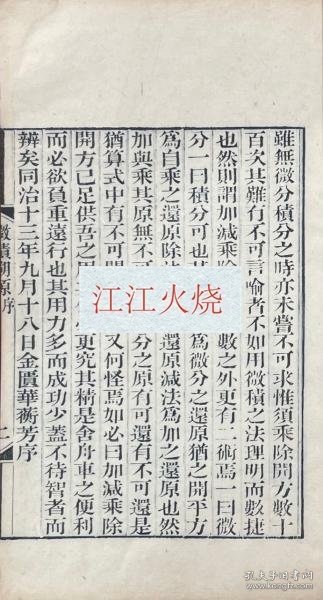 雖無微分積分之時亦未嘗不可求惟須乘除開方數十
百次其難有不可言喻者不如用微積之法理明而數捷
也然則謂加減乘除 數之外更有二術焉一曰微
分一曰積分可也其 為微分之還原猶之開平方
為自乘之還原除法 還原減法為加之還原也然
加與乘其原無不可 分之原有可還有不可還是
猶算式中有不可開 又何怪焉如必曰加減乘除
開方已足供吾之用 更究其精是舍舟車之便利
而必欲負重遠行也其用力多而成功少蓋不待智者而
辨矣同治十三年九月十八日金匱華蘅芳序
微積溯原序
二
江江火烧
孔夫子旧书网